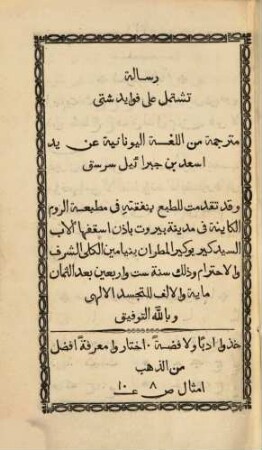 رسالة
تشتمل على فوايد شتى
مترجمة من اللغة اليونانية عن يد
اسعد بن جبرائيل سرسق
وقد تقدمت للطبع بنفقته في مطبعة الروم
الكاينة في مدينة بيروت باذن اسقفها الاب
السيد كير يوكير المطران بنيامين الكلي الشرف
والاحترام وذلك سنة ست واربعين بعد الثمان
ماية والالف للتجسد الالهي
وبالله التوفيق
خذوا ادبا ولا فضة ٠ اختاروا معرفة افضل
من الذهب
امثال ص ٨ عـ ١٠